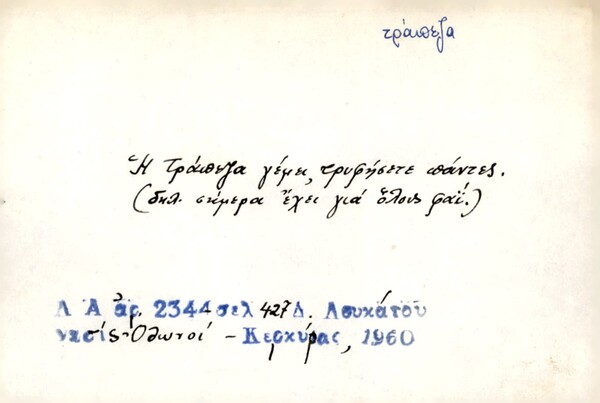 τράπεζα
Ἡ τράπεζα γέμει, τρυφήσετε πάντες.
(δηλ. σήμερα ἔχει γιά ὅλους φαΐ.)
Λ Α ἀρ. 2344 σελ 427 Δ. Λουκάτου
νησίς Ὀθωνοί - Κερκύρας, 1960